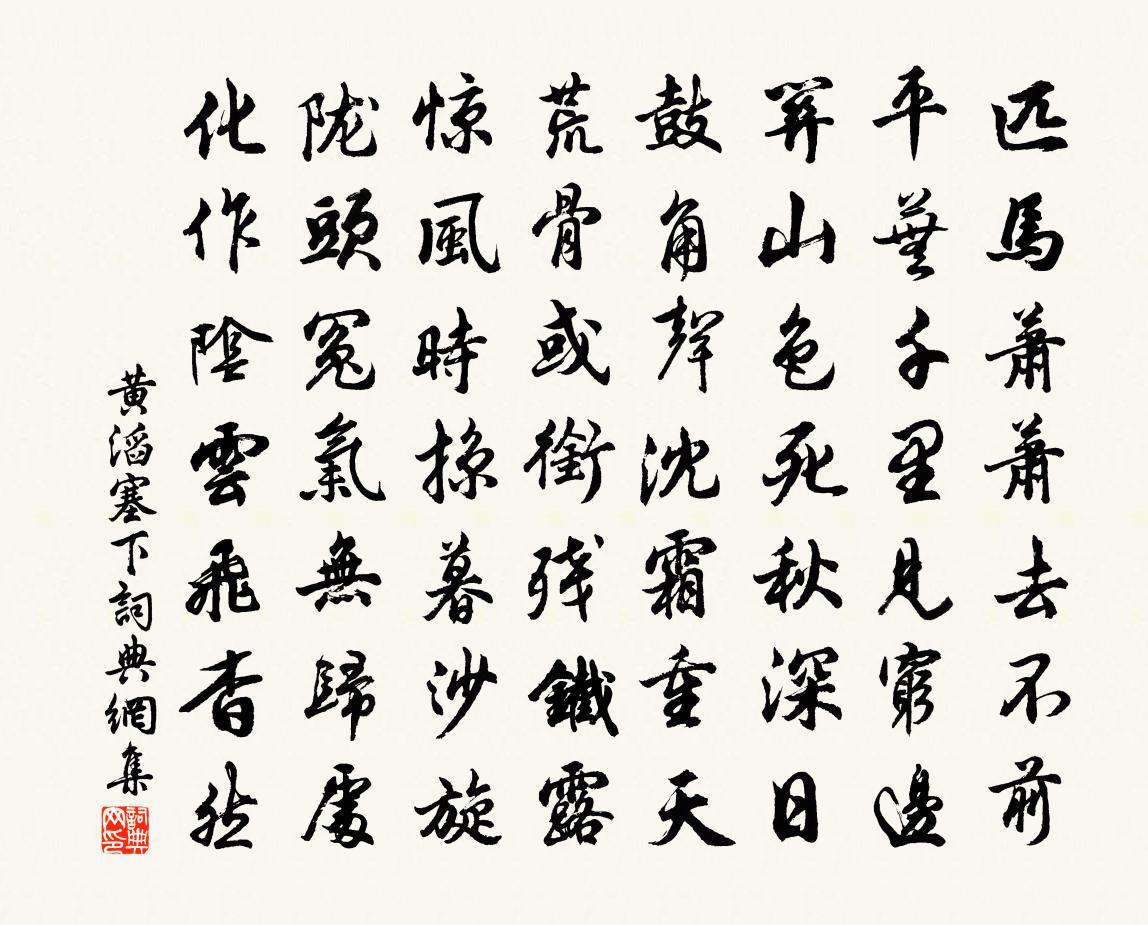 匹馬蕭蕭去不前
平蕪千里見窮邊
關山色死秋深日
鼓角聲沈霜重天
荒骨或銜残鐵露
惊風時掠暮沙旋
陇頭冤氣無歸處
化作陰雲飛杳然
黄滔塞下詞典網集
詞典网印